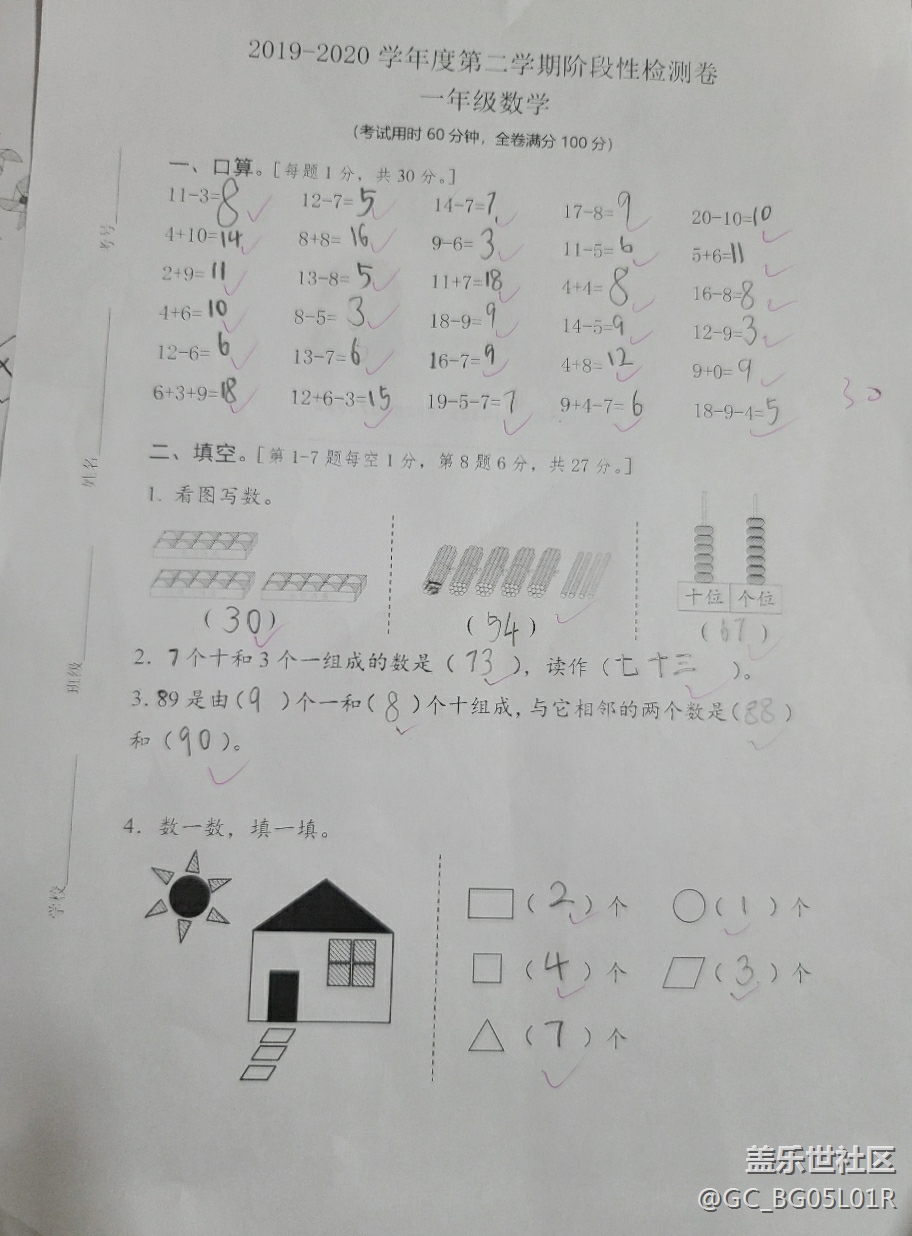 2019-2020 学年度第二学期阶段性检测卷
一年级数学
（考试用时 60 分钟，全卷满分 100 分）
一、口算。[每题 1 分，共 30 分。]
11-3=8 12-7=5 14-7=7 17-8=9 20-10=10
4+10=14 8+8=16 9-6=3 11-5=6 5+6=11
2+9=11 13-8=5 11+7=18 4+4=8 16-8=8
4+6=10 8-5=3 18-9=9 14-5=9 12-9=3
12-6=6 13-7=6 16-7=9 4+8=12 9+0=9
6+3+9=18 12+6-3=15 19-5-7=7 9+4-7=6 18-9-4=5
30
二、填空。[第 1-7 题每空 1 分，第 8 题 6 分，共 27 分。]
1. 看图写数。
十位 个位
（30） （54） （67）
2. 7个十和 3 个一组成的数是（73），读作（七十三）。
3. 89 是由（9）个一和（8）个十组成，与它相邻的两个数是（88）
和（90）。
4. 数一数，填一填。
（2）个 （1）个
（4）个 （3）个
（7）个
考号
姓名
班级
学校
盖乐世社区
@GC_BG05L01R